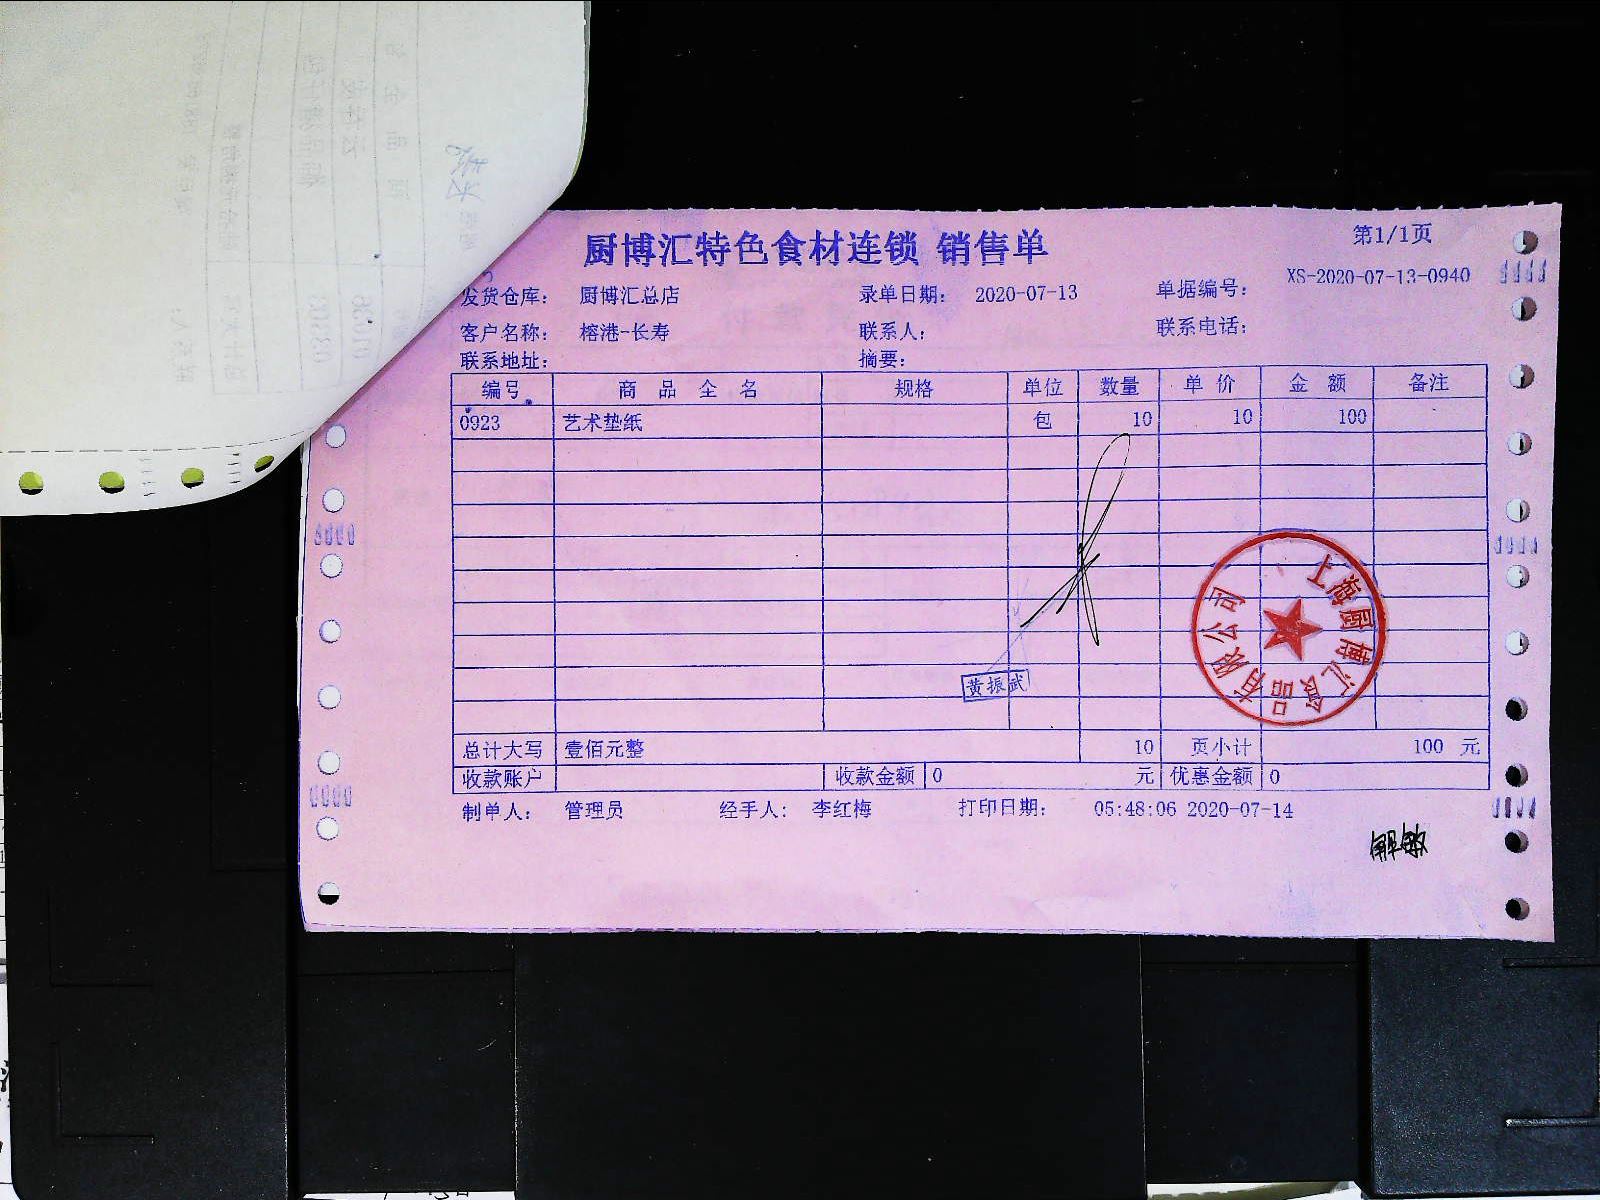 厨博汇特色食材连锁 销售单
第1/1页
发货仓库: 厨博汇总店 录单日期: 2020-07-13 单据编号: XS-2020-07-13-0940
客户名称: 榕港-长寿 联系人: 联系电话:
联系地址: 摘要:
编号 商品全名 规格 单位 数量 单价 金额 备注
0923 艺术垫纸 包 10 10 100
上海厨博汇食品有限公司
黄振武
总计大写 壹佰元整 10 页小计 100 元
收款账户 收款金额 0 元 优惠金额 0
制单人: 管理员 经手人: 李红梅 打印日期: 05:48:06 2020-07-14